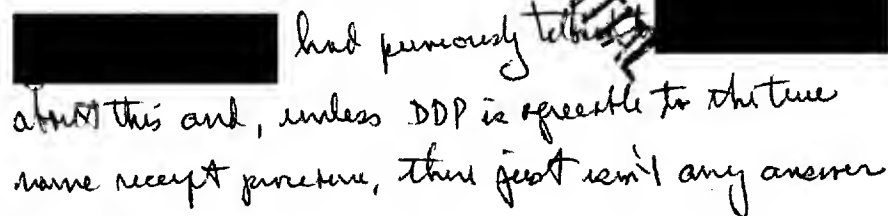 had previously
about this and, unless DDP is agreeable to the true
name receipt procedure, there just isn't any answer